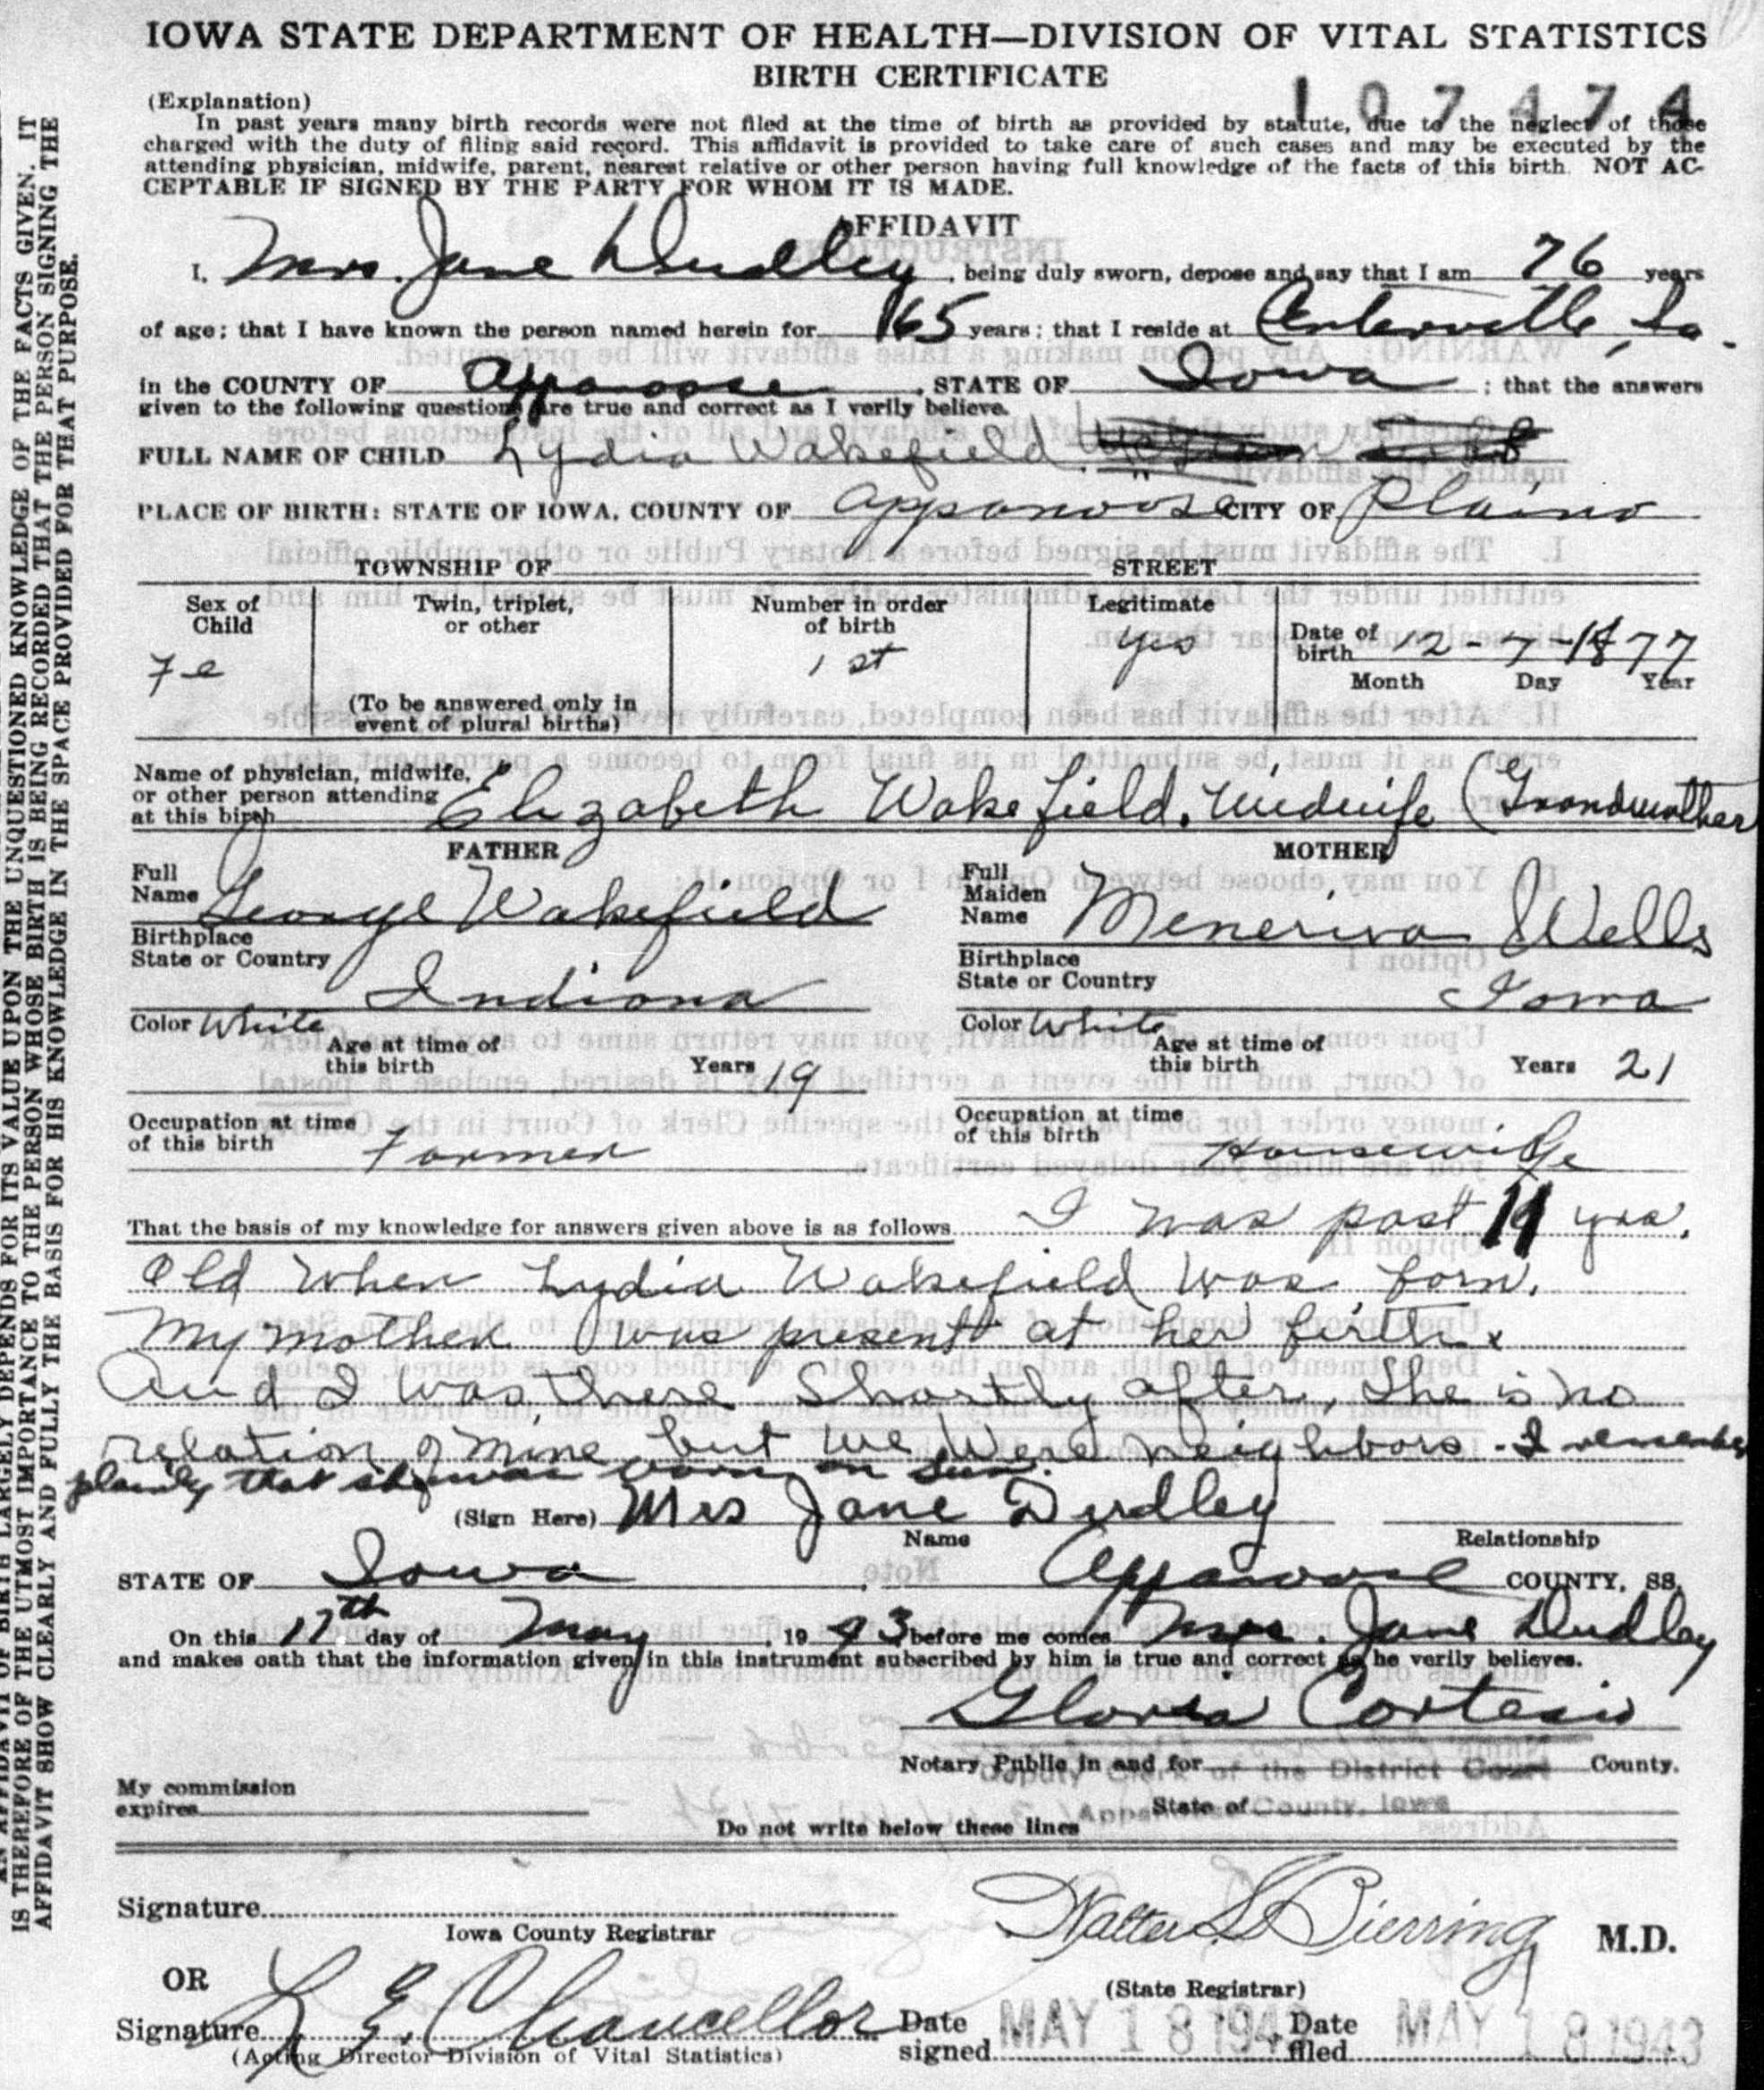 IOWA STATE DEPARTMENT OF HEALTH—DIVISION OF VITAL STATISTICS
BIRTH CERTIFICATE
107474
(Explanation)
In past years many birth records were not filed at the time of birth as provided by statute, due to the neglect of those
charged with the duty of filing said record. This affidavit is provided to take care of such cases and may be executed by the
attending physician, midwife, parent, nearest relative or other person having full knowledge of the facts of this birth. NOT AC-
CEPTABLE IF SIGNED BY THE PARTY FOR WHOM IT IS MADE.
AFFIDAVIT
I, Mrs. Jane Dudley, being duly sworn, depose and say that I am 76 years
of age; that I have known the person named herein for 65 years; that I reside at Centerville, Ia.
in the COUNTY OF Appanoose, STATE OF Iowa; that the answers
given to the following questions are true and correct as I verily believe.
FULL NAME OF CHILD Lydia Wakefield
PLACE OF BIRTH: STATE OF IOWA, COUNTY OF Appanoose CITY OF Plano
TOWNSHIP OF STREET
Sex of Child Fe
Twin, triplet, or other
(To be answered only in event of plural births)
Number in order of birth 1st
Legitimate yes
Date of birth 12-7-1877
Month Day Year
Name of physician, midwife, or other person attending at this birth Elizabeth Wakefield. Midwife (Grandmother
FATHER
Full Name George Wakefield
Birthplace State or Country Indiana
Color White
Age at time of this birth Years 19
Occupation at time of this birth Farmer
MOTHER
Full Maiden Name Meneriva Wells
Birthplace State or Country Iowa
Color White
Age at time of this birth Years 21
Occupation at time of this birth Housewife
That the basis of my knowledge for answers given above is as follows I was past 11 yrs.
Old when Lydia Wakefield was born.
My mother was present at her birth
And I was there shortly after, She is no
relation of mine but we were neighbors - I remember
plainly that she was born on
(Sign Here) Mrs Jane Dudley
Name Relationship
STATE OF Iowa, Appanoose COUNTY, SS.
On this 17th day of May, 1943 before me comes Mrs. Jane Dudley
and makes oath that the information given in this instrument subscribed by him is true and correct as he verily believes.
Gloria Cortesio
Notary Public in and for County.
Deputy Clerk of the District Court
My commission expires
State of
Appanoose County, Iowa
Do not write below these lines
Signature
Iowa County Registrar
Walter L. Bierring M.D.
(State Registrar)
OR
Signature L. E. Chancellor
(Acting Director Division of Vital Statistics)
Date signed MAY 18 1943
Date filed MAY 18 1943
AN AFFIDAVIT OF BIRTH LARGELY DEPENDS FOR ITS VALUE UPON THE UNQUESTIONED KNOWLEDGE OF THE FACTS GIVEN. IT
IS THEREFORE OF THE UTMOST IMPORTANCE TO THE PERSON WHOSE BIRTH IS BEING RECORDED THAT THE PERSON SIGNING THE
AFFIDAVIT SHOW CLEARLY AND FULLY THE BASIS FOR HIS KNOWLEDGE IN THE SPACE PROVIDED FOR THAT PURPOSE.